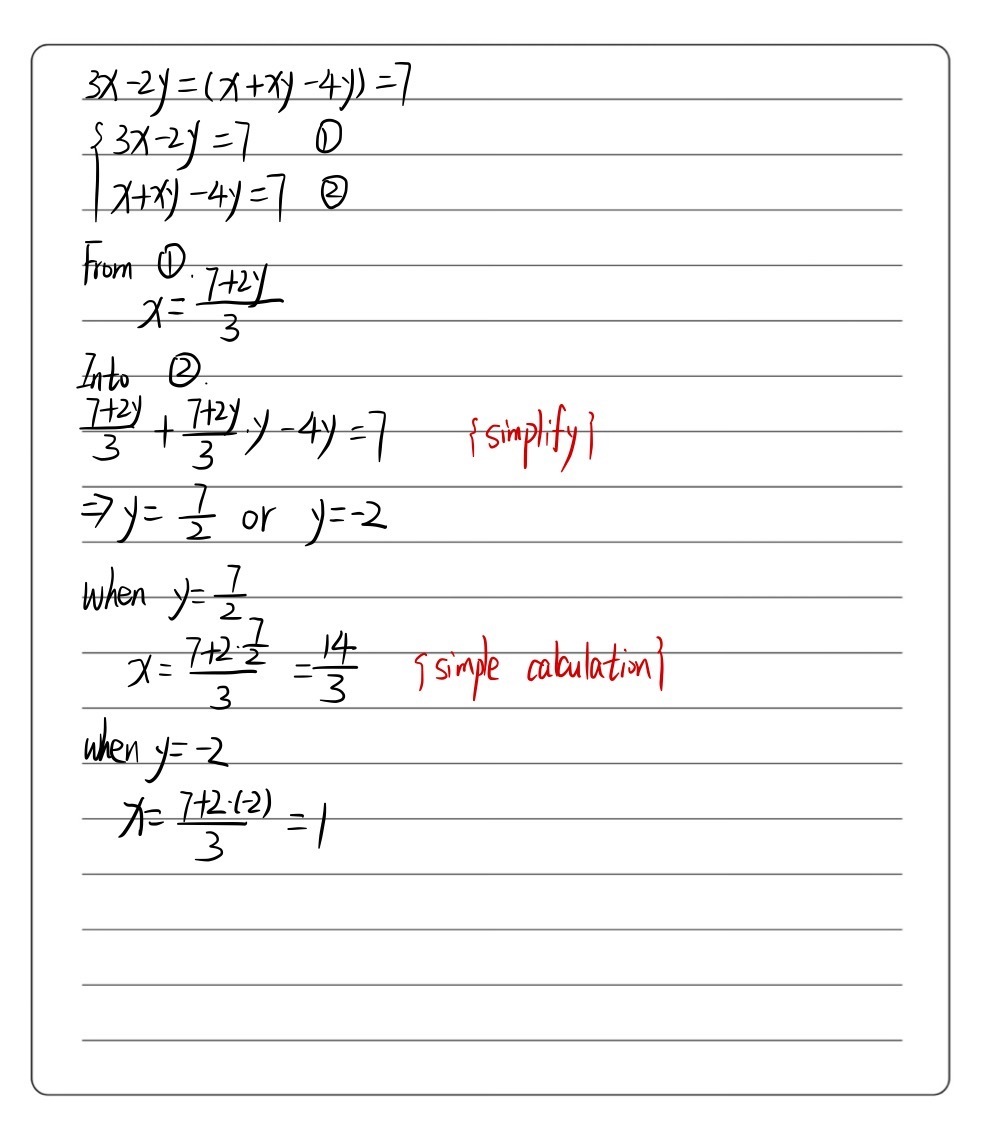 3x-2y=(x+xy-4y)=7
{3x-2y=7 ①
x+xy-4y=7 ②
From ①.
x=\frac{7+2y}{3}
Into ②.
\frac{7+2y}{3}+\frac{7+2y}{3}·y-4y=7 {simplify}
⇒y=\frac{7}{2} or y=-2
when y=\frac{7}{2}
x=\frac{7+2·\frac{7}{2}}{3}=\frac{14}{3} {simple calculation}
when y=-2
x=\frac{7+2·(-2)}{3}=1